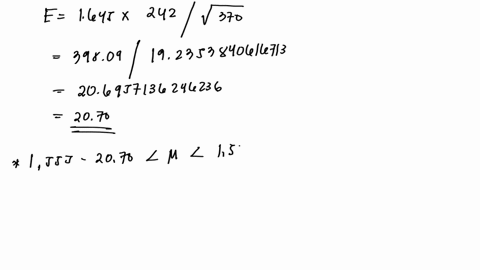 E = 1.645 × 242 / √370
= 398.09 / 19.2353840616713
= 20.6957136246236
= 20.70
* 1,555 - 20.70 < M < 1,5